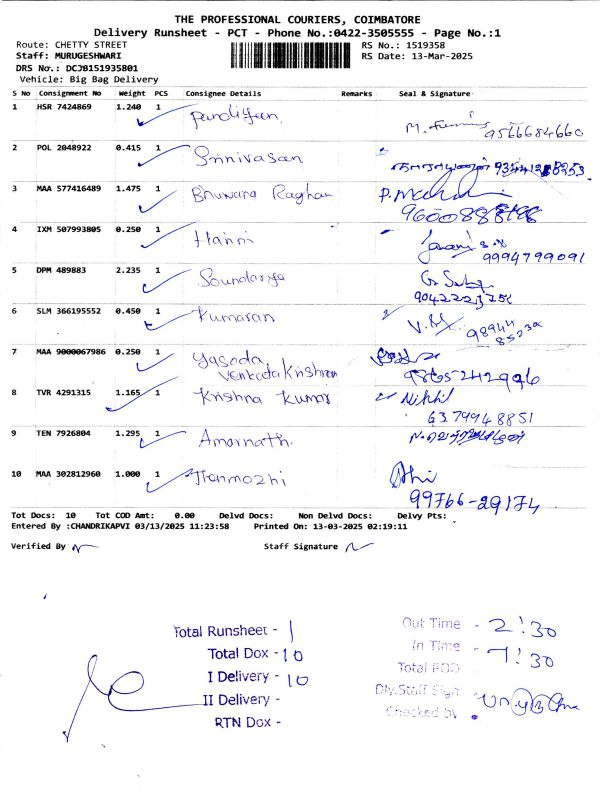 THE PROFESSIONAL COURIERS, COIMBATORE
Delivery Runsheet - PCT - Phone No.:0422-3505555 - Page No.:1
Route: CHETTY STREET
RS No.: 1519358
Staff: MURUGESHWARI
RS Date: 13-Mar-2025
DRS No.: DCJ8151935801
Vehicle: Big Bag Delivery
S No Consignment No Weight PCS Consignee Details Remarks Seal & Signature
1 HSR 7424869 1.240 1
9566684660
2 POL 2048922 0.415 1 Srinivasan
3 MAA 577416489 1.475 1 Bhuvana Raghan
4 IXM 507993805 0.250 1 Harini
9994799091
5 DPM 489883 2.235 1 Soundarya
6 SLM 366195552 0.450 1 Kumaran
7 MAA 9000067986 0.250 1 Yasoda
Venkata Krishnan
8 TVR 4291315 1.165 1 Krishna Kumar Nikhil
63 79948851
9 TEN 7926804 1.295 1 Amarnath.
10 MAA 302812960 1.000 1 Thenmozhi
99766-29174
Tot Docs: 10 Tot COD Amt: 0.00 Delvd Docs: Non Delvd Docs: Delvy Pts:
Entered By :CHANDRIKAPVI 03/13/2025 11:23:58 Printed On: 13-03-2025 02:19:11
Verified By
Staff Signature
Total Runsheet - 1
Total Dox - 10
I Delivery - 10
II Delivery -
RTN Dox -
Out Time - 2:30
In Time - 7:30
Total POD
Dly.Staff Sign
Checked by